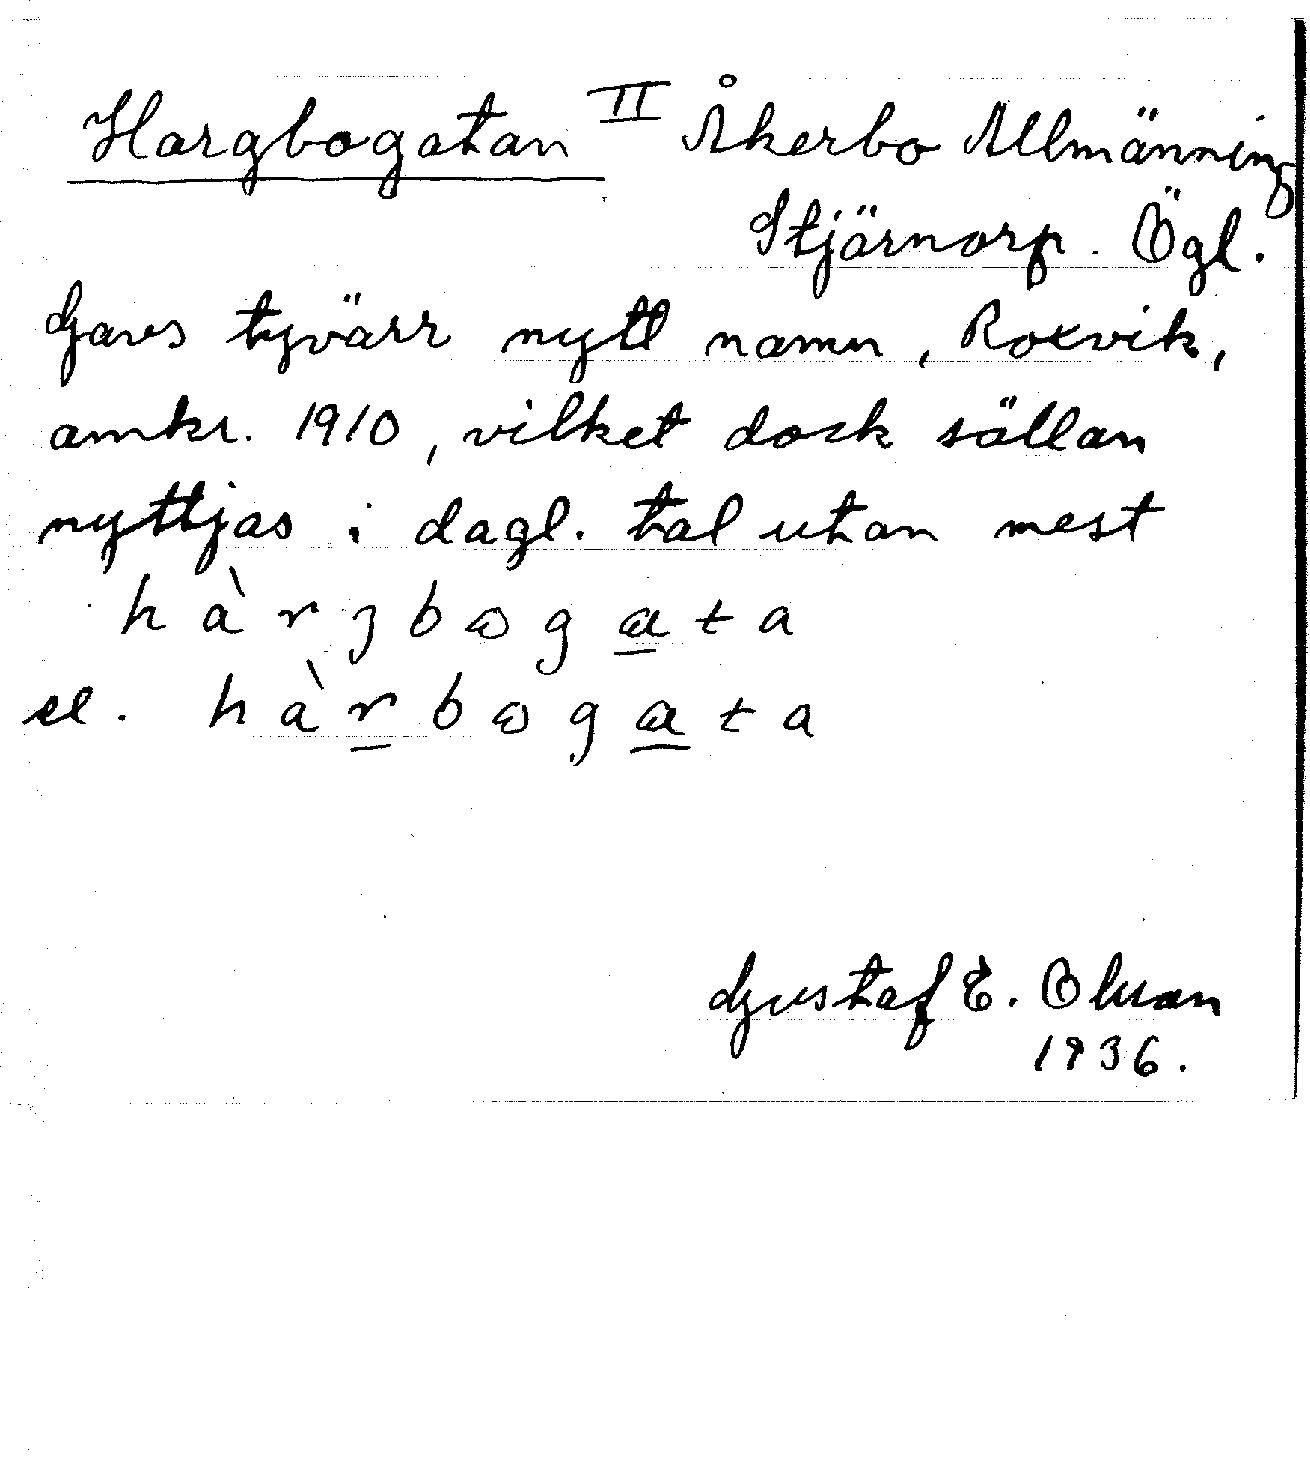 Hargbogatan II Åkerbo Allmänning
Stjärnorp. Ögl.
Gavs tyvärr nytt namn, Roxvik,
omkr. 1910, vilket dock sällan
nyttjas i dagl. tal utan mest
hàrʒbɷgata
el. hàrbɷgata
Gustaf E. Olsson
1936.